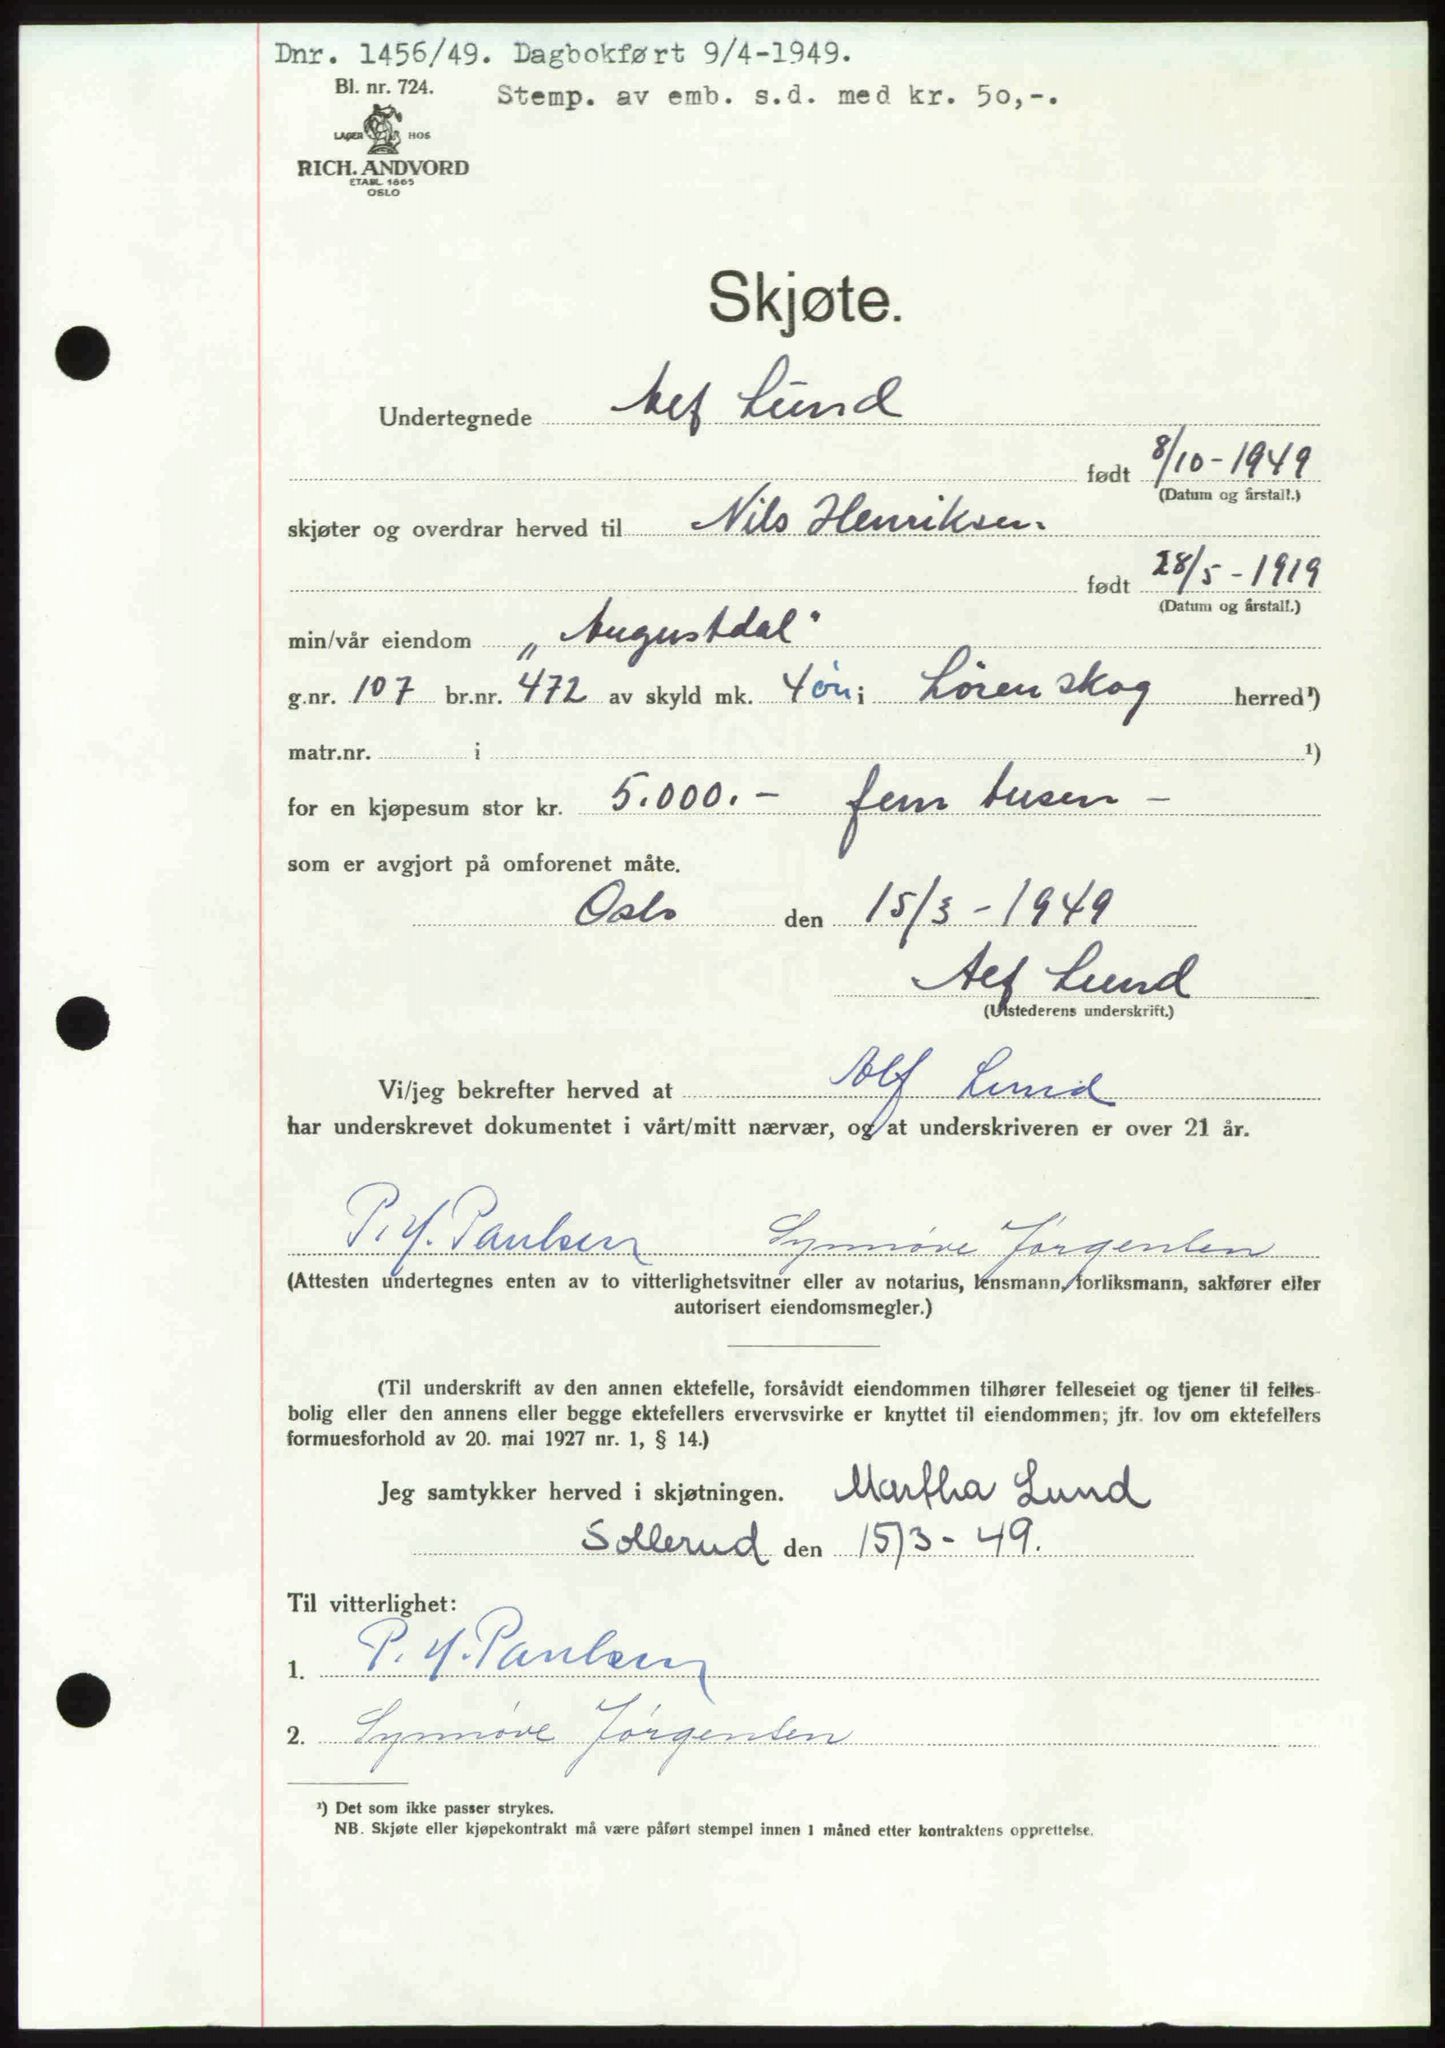 Dnr. 1456/49. Dagbokført 9/4-1949.
Stemp. av emb. s.d. med kr. 50,-.
Bl. nr. 724.
LAGER HOS
RICH. ANDVORD
ETABL. 1865
OSLO
Skjøte.
Undertegnede Alf Lund
født 8/10-1949
(Datum og årstall.)
skjøter og overdrar herved til Nils Henriksen
født 28/5-1919
(Datum og årstall.)
min/vår eiendom „Augustdal"
g.nr. 107 br.nr. 472 av skyld mk. 4 ør i Lörenskog herred¹)
matr.nr. i ¹)
for en kjøpesum stor kr. 5.000.- fem tusen -
som er avgjort på omforenet måte.
Oslo den 15/3-1949
Alf Lund
(Utstederens underskrift.)
Vi/jeg bekrefter herved at Alf Lund
har underskrevet dokumentet i vårt/mitt nærvær, og at underskriveren er over 21 år.
P. Y. Paulsen Synnøve Jørgensen
(Attesten undertegnes enten av to vitterlighetsvitner eller av notarius, lensmann, forliksmann, sakfører eller
autorisert eiendomsmegler.)
(Til underskrift av den annen ektefelle, forsåvidt eiendommen tilhører felleseiet og tjener til felles-
bolig eller den annens eller begge ektefellers ervervsvirke er knyttet til eiendommen; jfr. lov om ektefellers
formuesforhold av 20. mai 1927 nr. 1, § 14.)
Jeg samtykker herved i skjøtningen. Martha Lund
Sollerud den 15/3-49.
Til vitterlighet:
1. P. Y. Paulsen
2. Synnøve Jørgensen
¹) Det som ikke passer strykes.
NB. Skjøte eller kjøpekontrakt må være påført stempel innen 1 måned etter kontraktens opprettelse.